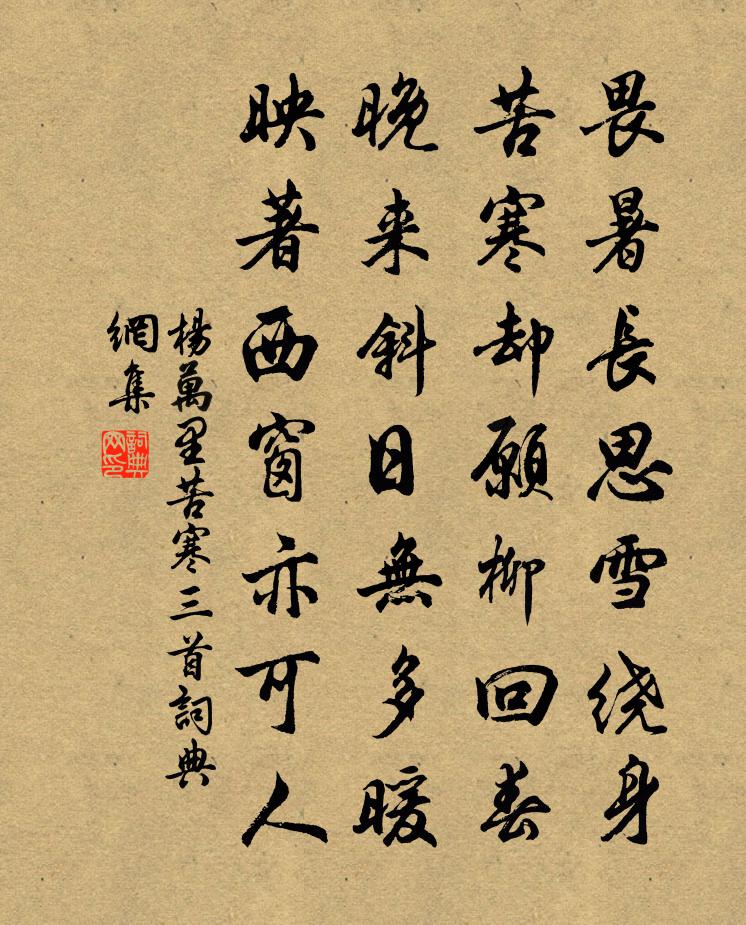 畏暑長思雪绕身
苦寒却願柳回春
晚来斜日無多暖
映著西窗亦可人
楊萬里苦寒三首詞典
網集
詞典
网印